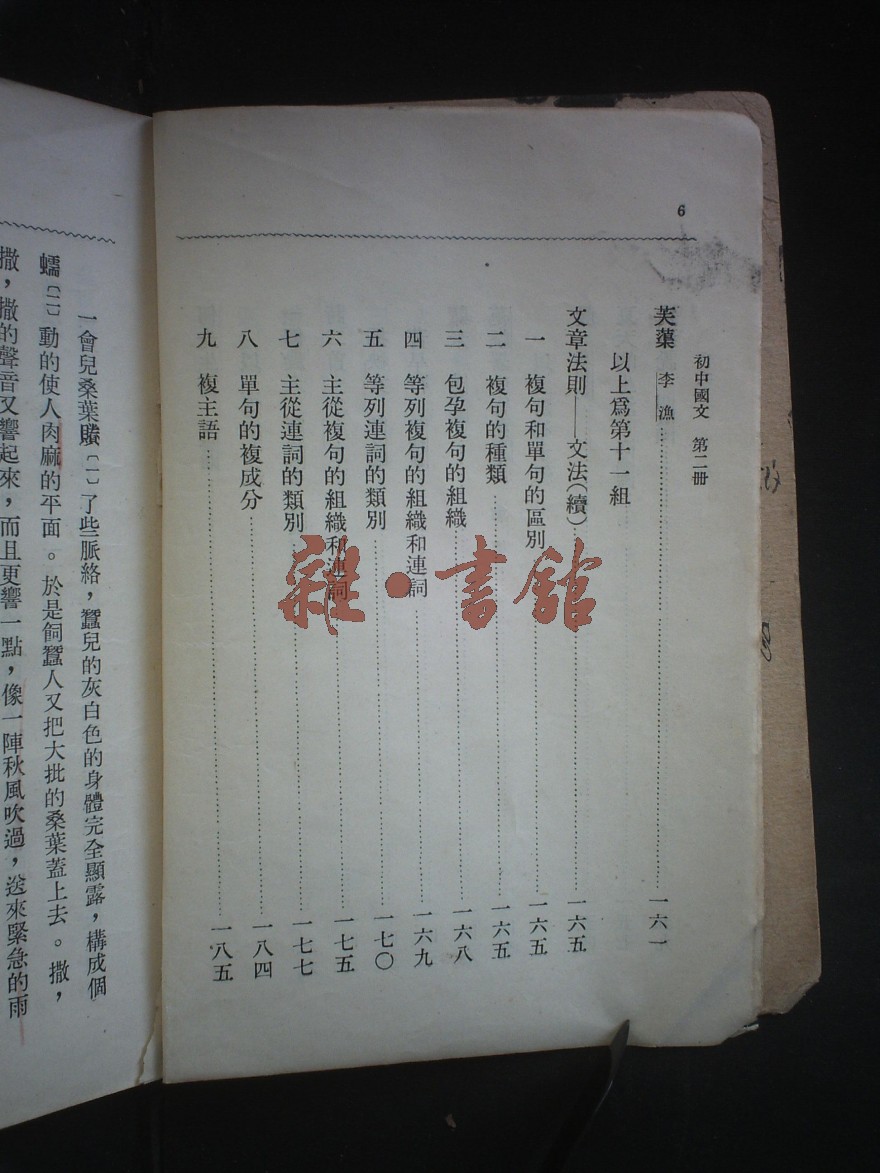 6
初中國文 第二冊
芙蕖 李漁 一六一
以上爲第十一組
文章法則——文法(續) 一六五
一 複句和單句的區別 一六五
二 複句的種類 一六五
三 包孕複句的組織 一六八
四 等列複句的組織和連詞 一六九
五 等列連詞的類別 一七〇
六 主從複句的組織和連詞 一七五
七 主從連詞的類別 一七七
八 單句的複成分 一八四
九 複主語 一八五
雜·書館
一會兒桑葉賸〔一〕了些脈絡，蠶兒的灰白色的身體完全顯露，構成個
蠕〔二〕動的使人肉麻的平面。於是飼蠶人又把大批的桑葉蓋上去。撒，
撒，撒的聲音又響起來，而且更響一點，像一陣秋風吹過，送來緊急的雨